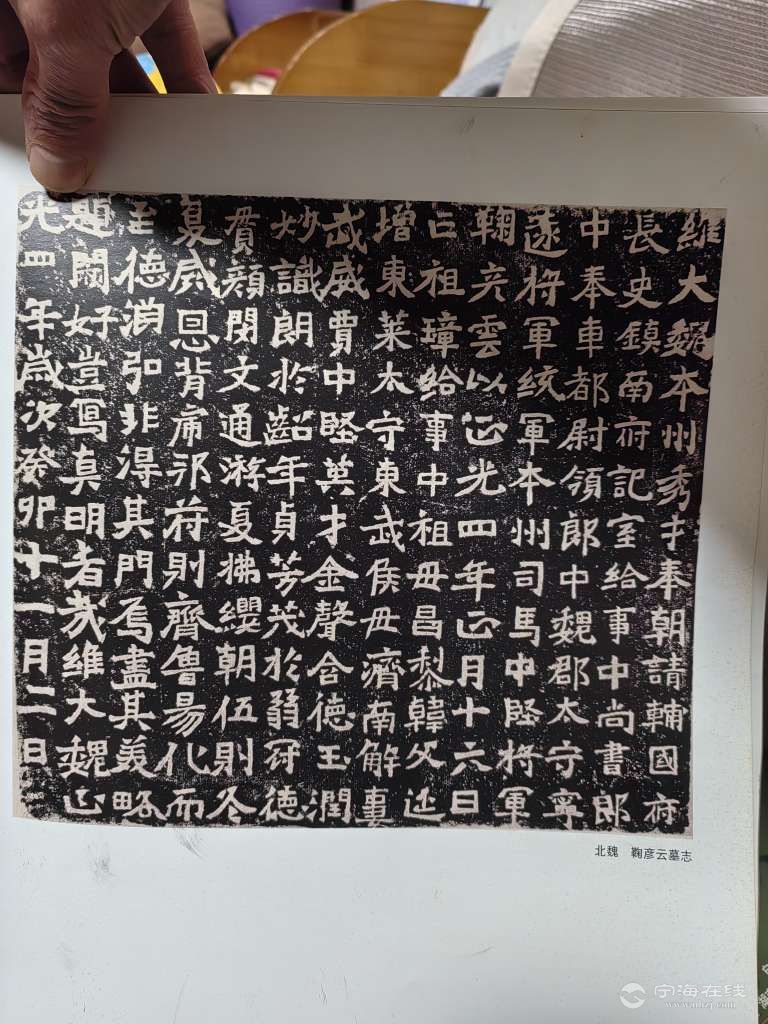 維大魏本州秀才奉朝請輔國府
長史鎮南府記室給事中尚書郎
中奉車都尉領郎中魏郡太守寧
遠將軍統軍本州司馬中堅將軍
彦雲以正光四年正月十六日
亡祖璋給事中祖母昌黎韓父延
增東萊太守東武侯母濟南解妻
武威賈中堅英才金聲含德玉潤
妙識朗於齠年貞芳茂於弱冠德
貫顔閔文通游夏拂纓朝伍則冬
夏威恩背虎邪苻則齊魯易化而
至德淵弘非得其門焉盡其美略
題闕好豈寫真明者哉維大魏正
光四年歲次癸卯十一月二日
北魏 鞠彦云墓志
宁海在线
www.nhzj.com